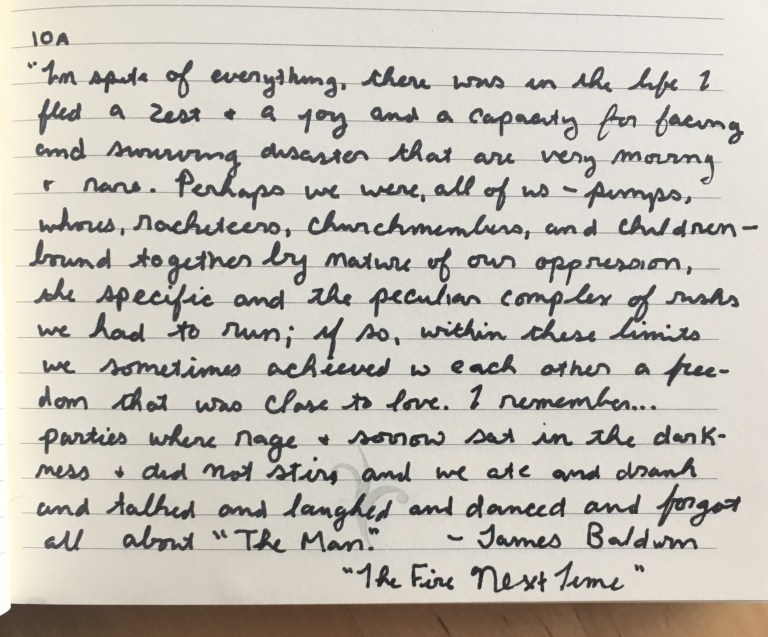 10A
"In spite of everything, there was in the life I
fled a zest + a joy and a capacity for facing
and surviving disaster that are very moving
+ rare. Perhaps we were, all of us - pimps,
whores, racketeers, churchmembers, and children-
bound together by nature of our oppression,
the specific and the peculiar complex of risks
we had to run; if so, within these limits
we sometimes achieved w each other a free-
dom that was close to love. I remember...
parties where rage + sorrow sat in the dark-
ness + did not stir, and we ate and drank
and talked and laughed and danced and forgot
all about "The Man." - James Baldwin
"The Fire Next Time"